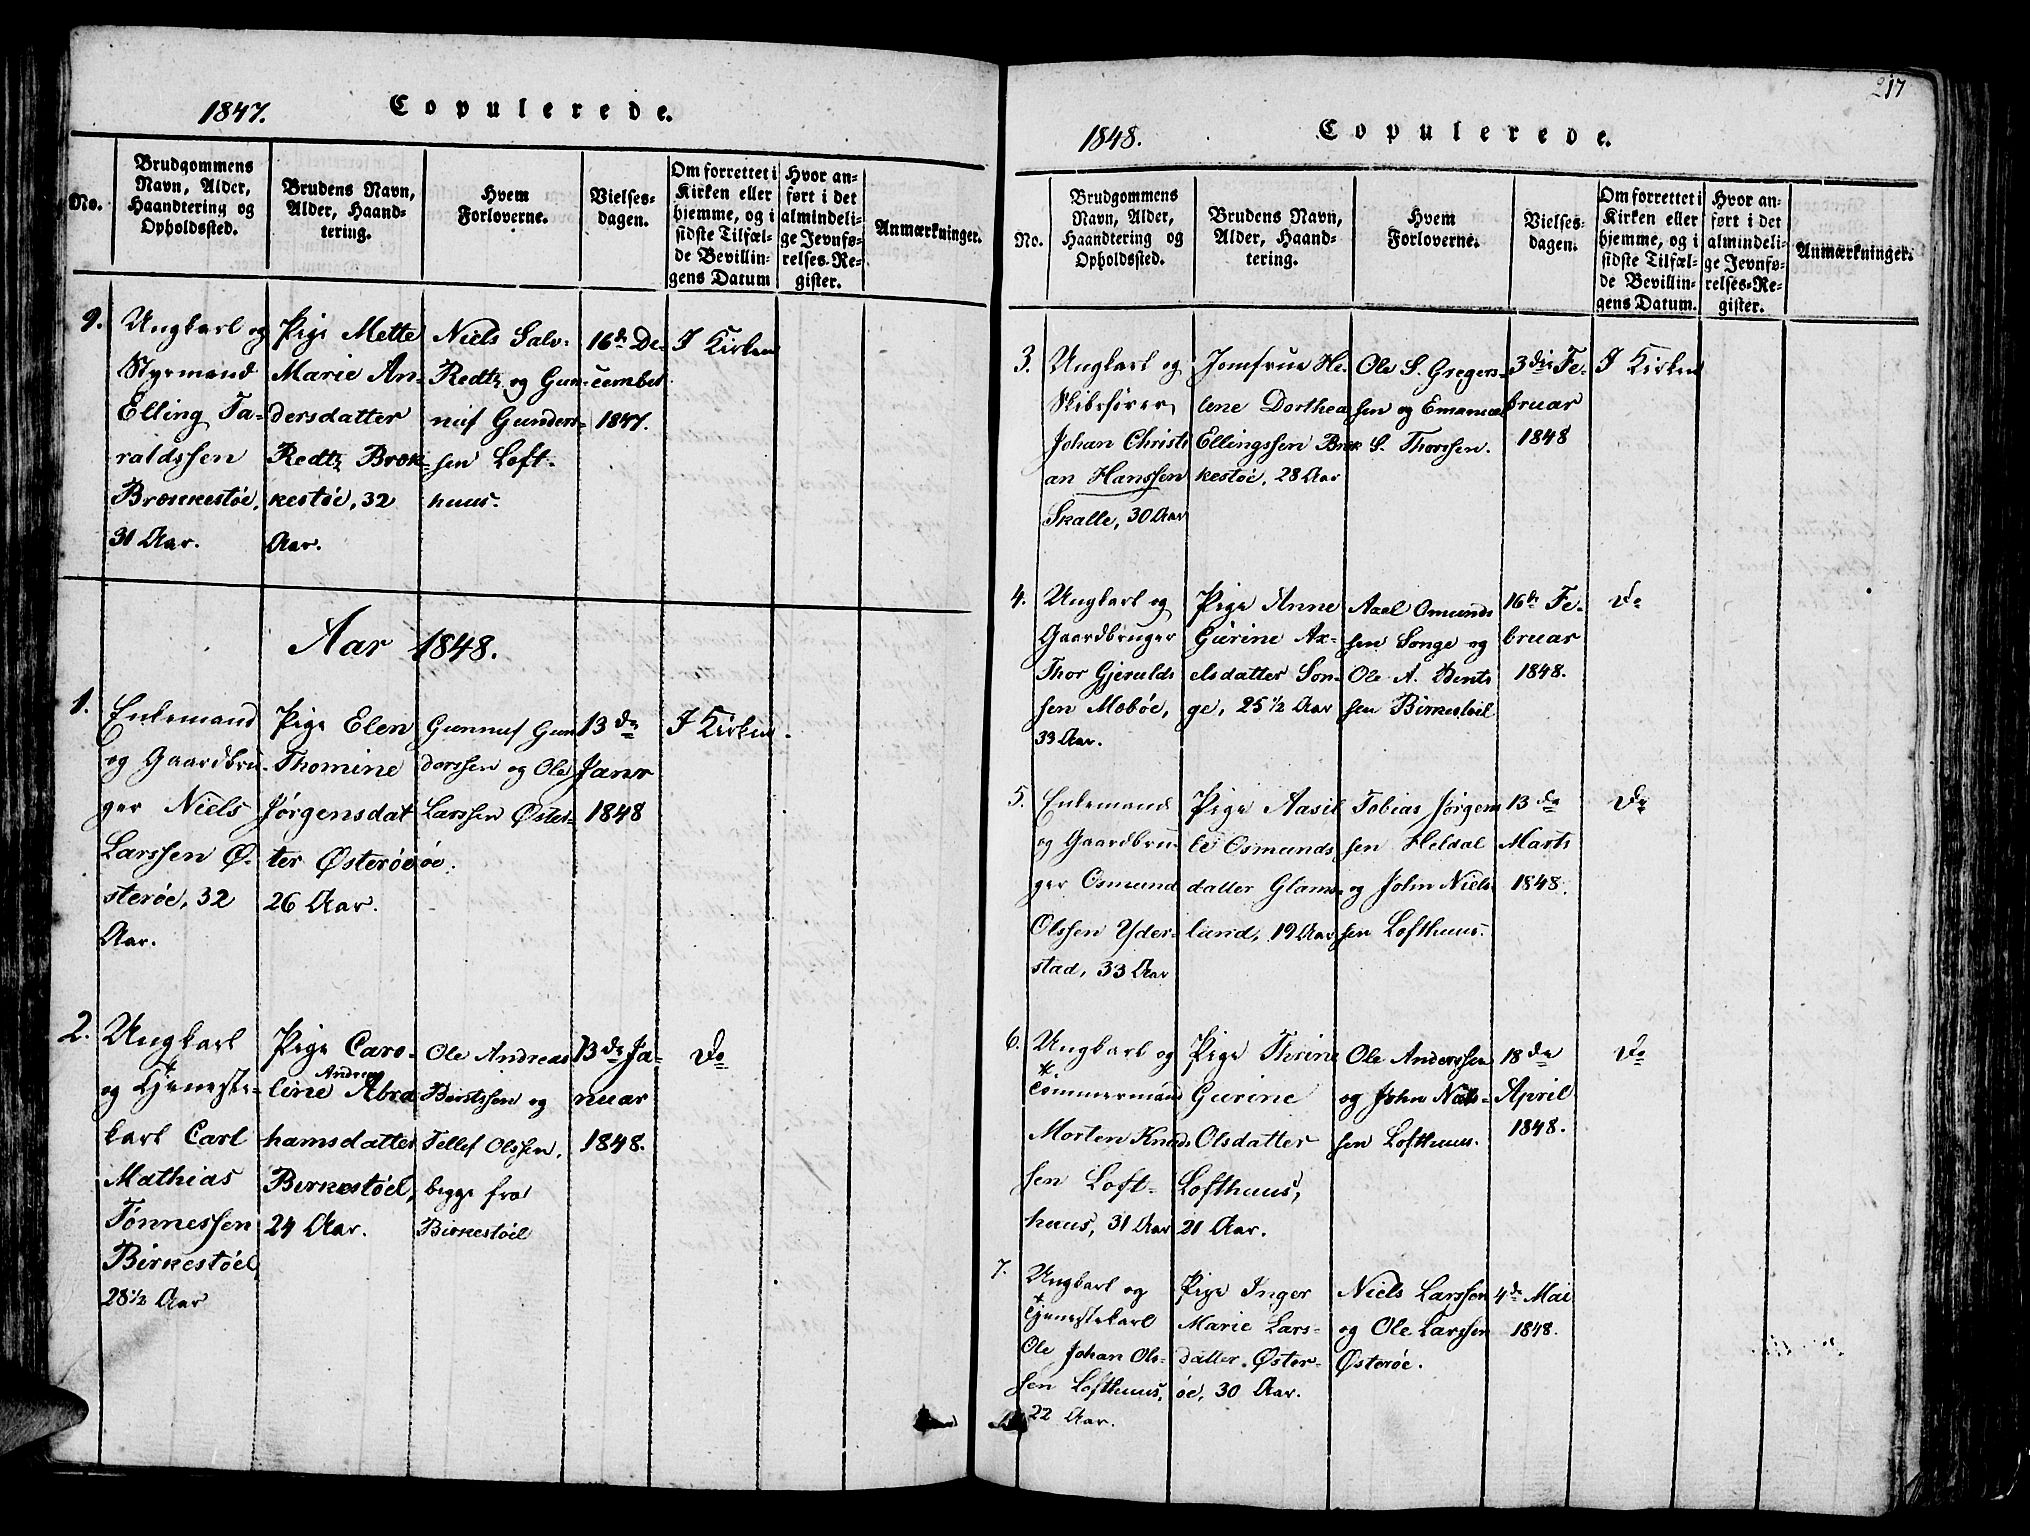 1847. Copulerede.
No.
Brudgommens
Navn, Alder,
Haandtering og
Opholdssted.
Brudens Navn,
Alder, Haand-
tering.
Hvem
Forloverne.
Vielses-
dagen.
Om forrettet i
Kirken eller
hjemme, og i
sidste Tilfæl-
de Bevillin-
gens Datum
Hvor an-
ført i det
almindeli-
ge Jevnfø-
relses-Re-
gister.
Anmærkninger.
9.
Ungkarl og
Styrmand
Elling Ta-
raldssen
Brækkestøe,
31 Aar.
Pige Mette
Marie An-
dersdatter
Redtz Bræk-
kestøe, 32
Aar.
Niels Salv.
Redtz og Gun-
nuf Gunders-
sen Loft-
huus.
16de De-
cember
1847.
I Kirken
Aar 1848.
1.
Enkemand
og Gaardbru-
ger Niels
Larssen Ø-
sterøe, 32
Aar.
Pige Elen
Thomine
Jørgensdat
ter Østerøe
26 Aar.
Gunnuf Gun
derssen og Ole
Larssen Øster-
øe.
13de
Janr
1848
I Kirken.
2.
Ungkarl
og Tjeneste-
karl Carl
Mathias
Tønnessen
Birkestøel,
28 1/2 Aar
Pige Caro-
line Andrea Abra
hamsdatter
Birkestøel,
24 Aar.
Ole Andreas
Berntssen og
Tellef Olssen,
begge fra
Birkestøel
13de Ja-
nuar
1848.
Do
217
1848. Copulerede.
No.
Brudgommens
Navn, Alder,
Haandtering og
Opholdssted.
Brudens Navn,
Alder, Haand-
tering.
Hvem
Forloverne.
Vielses-
dagen.
Om forrettet i
Kirken eller
hjemme, og i
sidste Tilfæl-
de Bevillin-
gens Datum.
Hvor an-
ført i det
almindeli-
ge Jevnfø-
relses-Re-
gister.
Anmærkninger.
3.
Ungkarl og
Skibsfører
Johan Christi
an Hanssen
Skalle, 30 Aar
Jomfrue He-
lene Dorthea
Ellingssen Bræk
kestøe, 28 Aar
Ole S. Gregers-
sen og Emanuel
S. Thorssen.
3die Fe-
bruar
1848
I Kirken
4.
Ungkarl og
Gaardbruger
Thor Gjerulds
sen Mobøe,
33 Aar.
Pige Anne
Gurine Ax-
elsdatter Son-
ge, 25 1/2 Aar
Axel Omunds
sen Songe og
Ole A. Bents
sen Birkestøel
16de Fe-
bruar
1848.
Do
5.
Enkemand
og Gaardbru-
ger Osmund
Olssen Yder-
stad, 33 Aar
Pige Aasil
le Osmunds
datter Glams-
land, 19 Aar
Tobias Jørgens
sen Heldal
og John Niels-
sen Lofthuus.
13de
Marts
1848.
Do
6.
Ungkarl og
Tømmermand
Morten Knuds
sen Loft-
huus, 31 Aar
Pige Therine
Gurine
Olsdatter
Lofthuus,
21 Aar.
Ole Anderssen
og John Niels-
sen Lofthuus.
18de
April
1848.
Do
7.
Ungkarl og
Tjenestekarl
Ole Johan Ols-
sen Lofthuus,
22 Aar.
Pige Inger
Marie Lars-
datter Øster-
øe, 30 Aar.
Niels Larssen
og Ole Larssen
Østerøe.
4de Mai
1848.